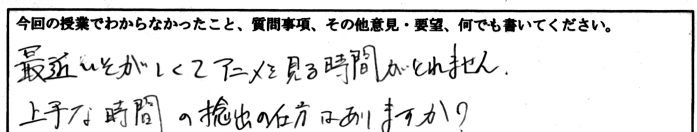 今回の授業でわからなかったこと、質問事項、その他意見・要望、何でも書いてください。
最近いそがしくてアニメを見る時間がとれません.
上手な時間の捻出の仕方はありますか?